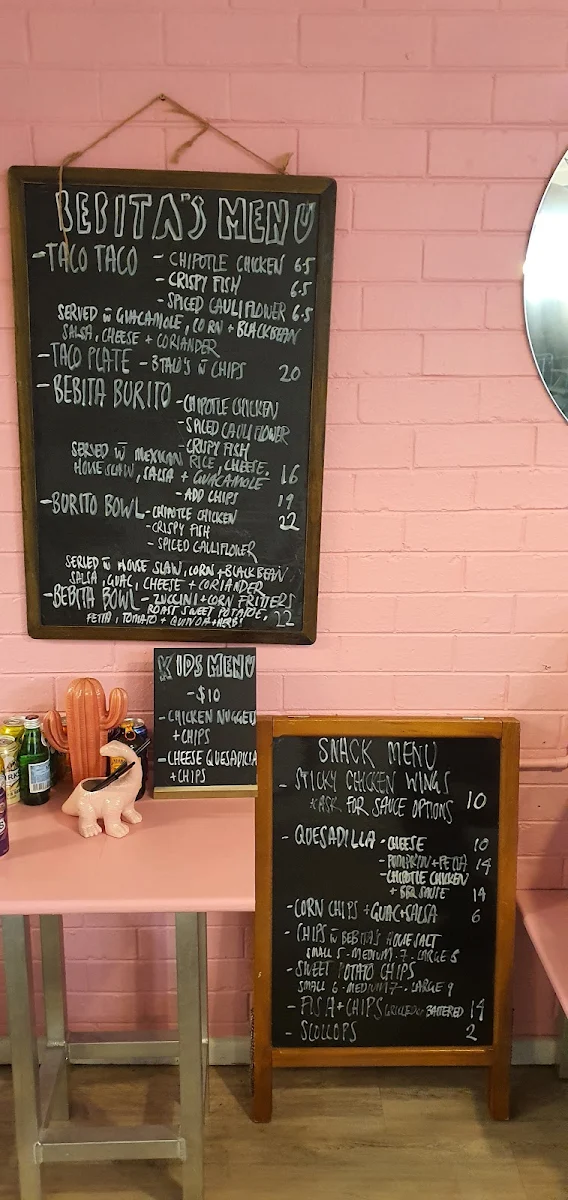 BEBITA'S MENU
- TACO TACO - CHIPOTLE CHICKEN 6.5
- CRISPY FISH 6.5
- SPICED CAULIFLOWER 6.5
SERVED W GUACAMOLE, CORN + BLACKBEAN
SALSA, CHEESE + CORIANDER
- TACO PLATE - 3 TACO'S W CHIPS 20
- BEBITA BURITO - CHIPOTLE CHICKEN
- SPICED CAULIFLOWER
- CRISPY FISH
SERVED W MEXICAN RICE, CHEESE,
HOUSE SLAW, SALSA + GUACAMOLE 16
- ADD CHIPS 19
- BURITO BOWL - CHIPOTLE CHICKEN 22
- CRISPY FISH
- SPICED CAULIFLOWER
SERVED W HOUSE SLAW, CORN + BLACKBEAN
SALSA, GUAC, CHEESE + CORIANDER
- BEBITA BOWL - ZUCCINI + CORN FRITTERS
ROAST SWEET POTATOE,
FETTA, TOMATO + QUINOA + HERB 22
KIDS MENU
- $10
- CHICKEN NUGGETS
+ CHIPS
- CHEESE QUESADILLA
+ CHIPS
SNACK MENU
- STICKY CHICKEN WINGS
* ASK FOR SAUCE OPTIONS 10
- QUESADILLA - CHEESE 10
- PUMPKIN + FETTA 14
- CHIPOTLE CHICKEN
+ BBQ SAUCE 14
- CORN CHIPS + GUAC + SALSA 6
- CHIPS W BEBITA'S HOUSE SALT
SMALL 5 - MEDIUM - 7 - LARGE 8
- SWEET POTATO CHIPS
SMALL 6 - MEDIUM 7 - LARGE 9
- FISH + CHIPS GRILLED OR BATTERED 14
- SCOLLOPS 2